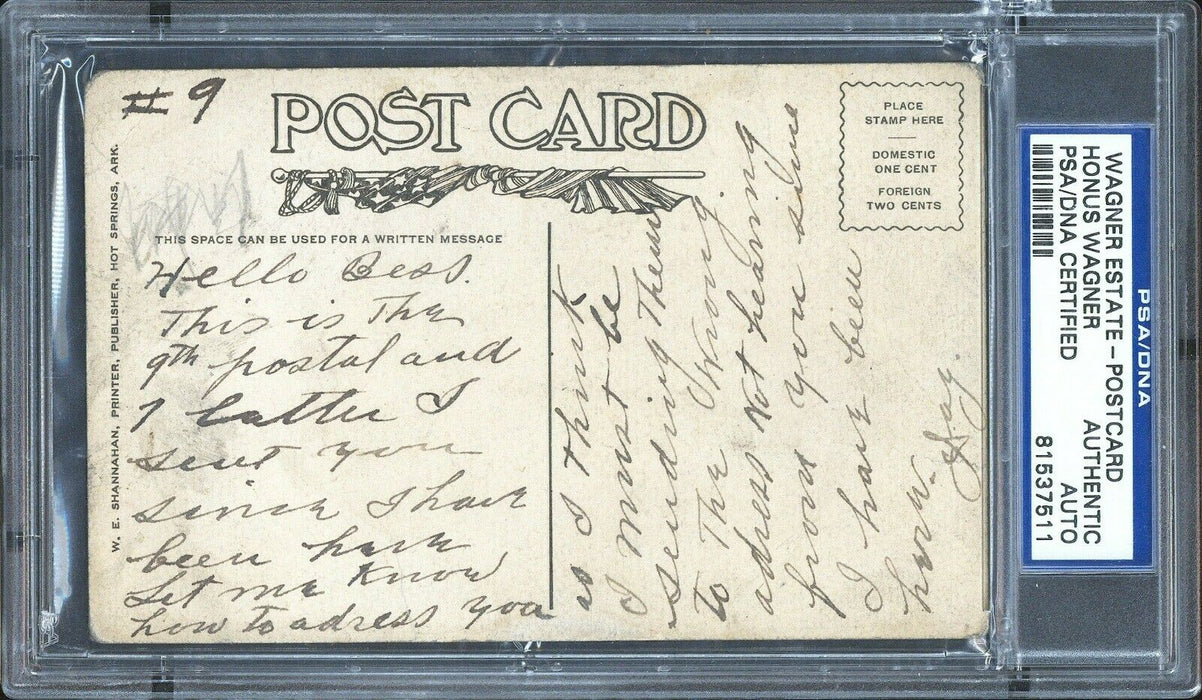 # 9
POST CARD
PLACE
STAMP HERE
DOMESTIC
ONE CENT
FOREIGN
TWO CENTS
THIS SPACE CAN BE USED FOR A WRITTEN MESSAGE
W. E. SHANNAHAN, PRINTER, PUBLISHER, HOT SPRINGS, ARK.
Hello Bess.
This is The
9th postal and
1 latter I
sent you
since I have
been here
Let me Know
how to adress you
as I Think
I must be
sending Them
to The Wrong
adress Not hearing
from you sinse
I have been
here.
Jay.
PSA/DNA
WAGNER ESTATE - POSTCARD
HONUS WAGNER
PSA/DNA CERTIFIED
AUTHENTIC
AUTO
81537511